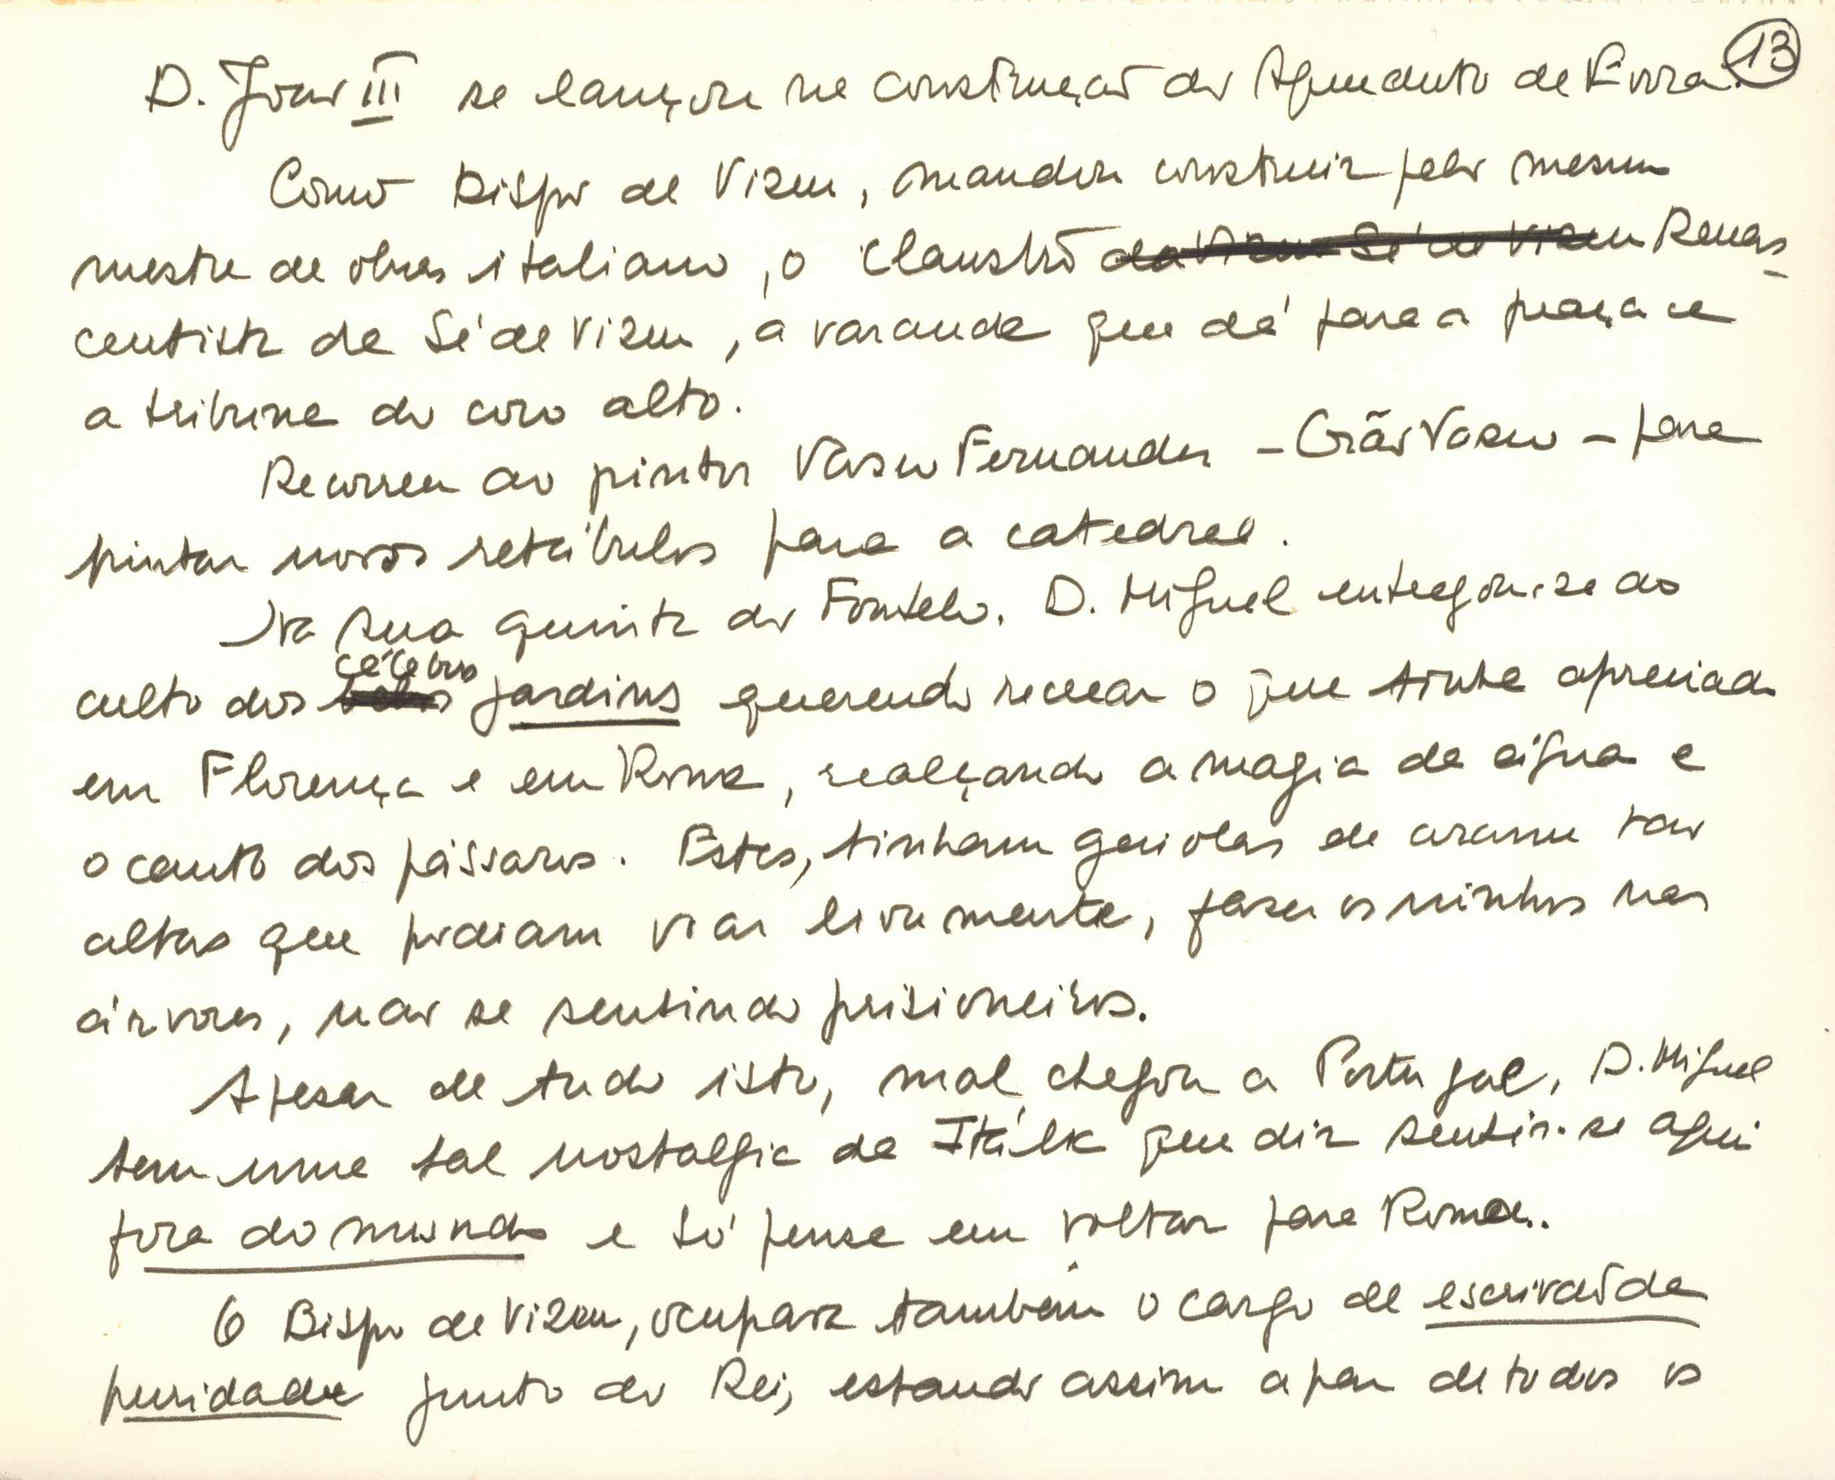 13
D. João III se lançou na construção do Aqueduto de Évora.
Como Bispo de Viseu, mandou construir pelo mesmo
mestre de obras italiano, o claustro da Viseu Sé de Viseu Renas-
centista da Sé de Viseu, a varanda que dá para a praça e
a tribuna do coro alto.
Recorreu ao pintor Vasco Fernandes - Grão Vasco - para
pintar novos retábulos para a catedral.
Na sua quinta do Fontelo, D. Miguel entregou-se ao
célebres
culto dos belos jardins querendo recrear o que tinha apreciado
em Florença e em Roma, realçando a magia da água e
o canto dos pássaros. Estes, tinham gaiolas de arame tão
altas que podiam voar livremente, fazer os ninhos nas
árvores, não se sentindo prisioneiros.
Apesar de tudo isto, mal chegou a Portugal, D. Miguel
tem uma tal nostalgia da Itália que diz sentir-se aqui
fora do mundo e só pensa em voltar para Roma.
O Bispo de Viseu, ocupara também o cargo de escrivão da
puridade junto do Rei, estando assim a par de todos os